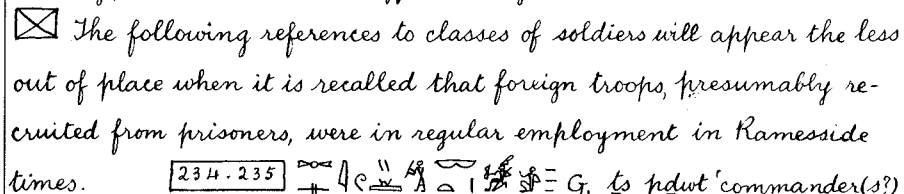 The following references to classes of soldiers will appear the less
out of place when it is recalled that foreign troops, presumably re-
cruited from prisoners, were in regular employment in Ramesside
times. 234.235 G, ts pdwt 'commander(s?)